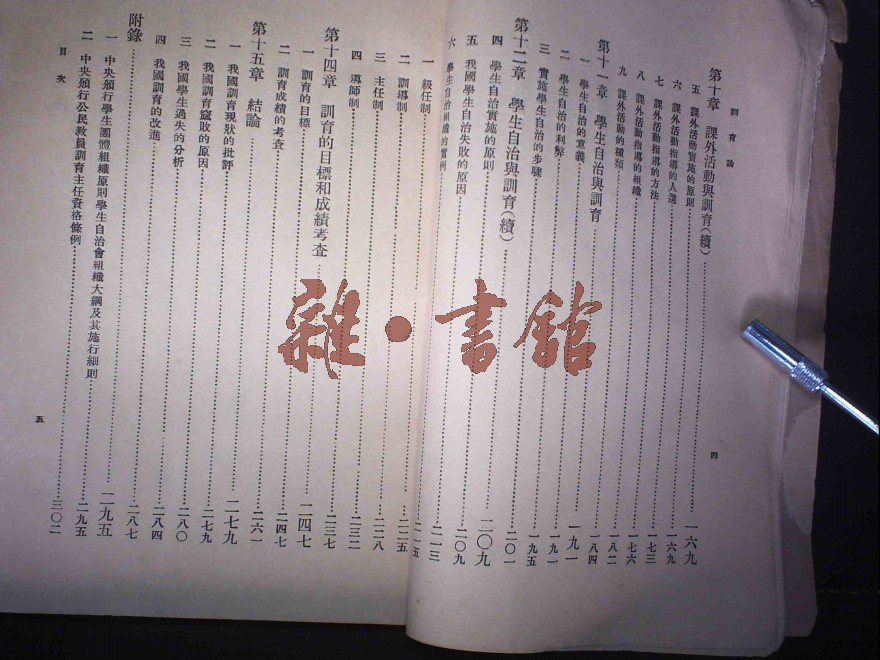 訓育論
第十章 課外活動與訓育(續)……一六九
五 課外活動實施的原則……一六九
六 課外活動指導的人選……一七三
七 課外活動指導的方法……一七六
八 課外活動指導的組織……一八二
九 課外活動的種類……一八四
第十一章 學生自治與訓育……一九一
一 學生自治的意義……一九一
二 學生自治的利弊……一九五
三 實施學生自治的步驟……二〇一
第十二章 學生自治與訓育(續)……二〇九
四 學生自治實施的原則……二〇九
五 我國學生自治失敗的原因……二一三
六 學生自治組織的實例……二一五
四
一 級任制……二二五
二 訓導制……二二八
三 主任制……二三二
四 導師制……二三七
第十四章 訓育的目標和成績考查……二四七
一 訓育的目標……二四七
二 訓育成績的考查……二六一
第十五章 結論……二七九
一 我國訓育現狀的批評……二七九
二 我國訓育窳敗的原因……二八〇
三 我國學生過失的分析……二八四
四 我國訓育的改進……二八七
附錄……二九五
一 中央頒行學生團體組織原則學生自治會組織大綱及其施行細則……二九五
二 中央頒行公民教員訓育主任資格條例……三〇二
目次
五
雜·書館